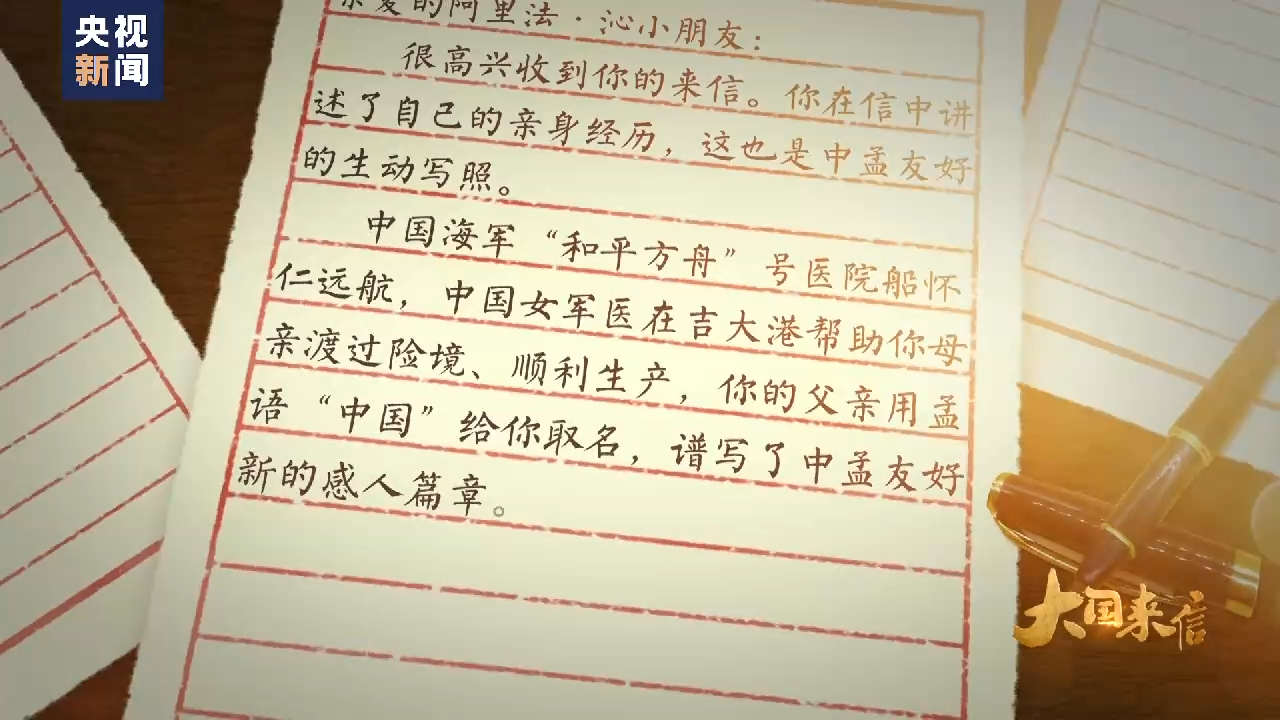 央视
新闻
亲爱的阿里法·沁小朋友：
很高兴收到你的来信。你在信中讲
述了自己的亲身经历，这也是中孟友好
的生动写照。
中国海军“和平方舟”号医院船怀
仁远航，中国女军医在吉大港帮助你母
亲渡过险境、顺利生产，你的父亲用孟
语“中国”给你取名，谱写了中孟友好
新的感人篇章。
大国来信